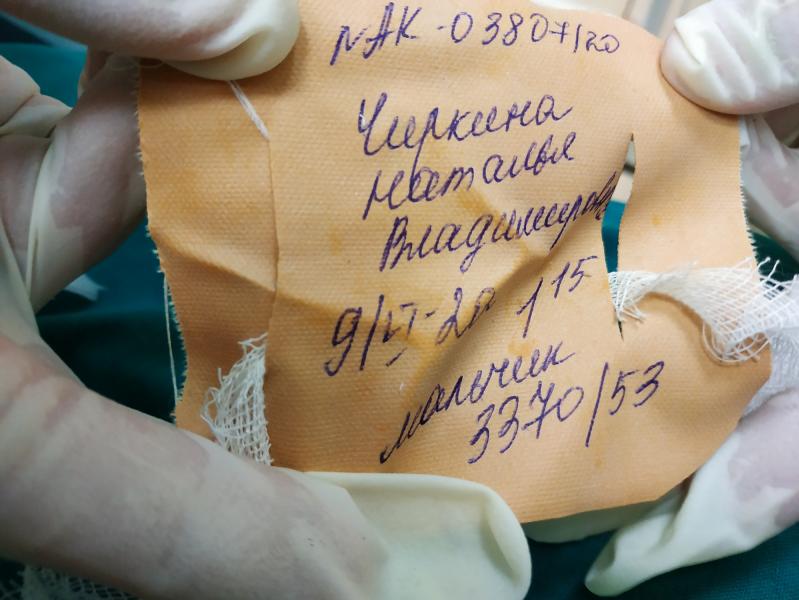 NAK-03807/20
Чиркина
Наталья
Владимировна
9/VI-20 1 15
мальчик
3370/53